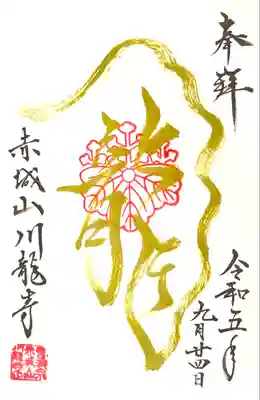 奉拝
令和五年
九月廿四日
龍
赤城山川龍寺